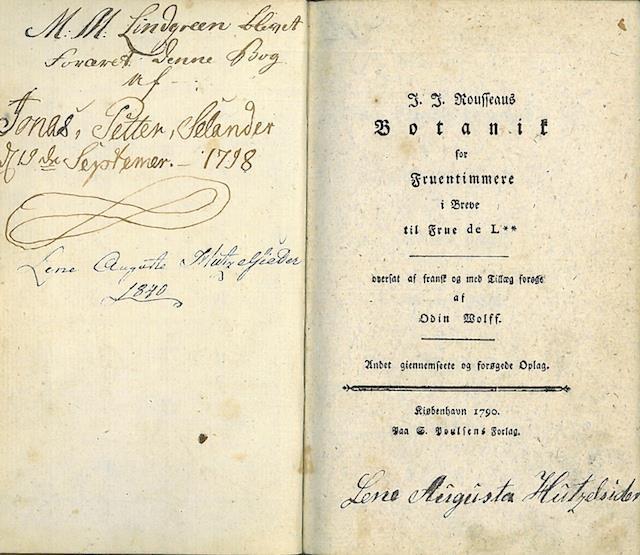 M. M. Lindgreen blivet
foræret denne Bog
af
Jonas, Petter, Selander
19 de Septemer. – 1798
Lene Auguste Hützelsieder
1840
J. J. Rousseaus
Botanik
for
Fruentimmere
i Breve
til Frue de L**
oversat af fransk og med Tillæg forøget
af
Odin Wolff.
Andet giennemseete og forøgede Oplag.
Kiøbenhavn 1790.
Paa S. Poulsens Forlag.
Lene Augusta Hützelsider